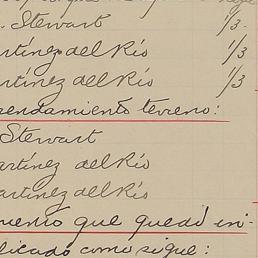 . Stewart 1/3.
artínez del Río 1/3
artínez del Río 1/3
endamiento terreno:
Stewart
artínez del Río
artínez del Río
mento que quedó in-
licado como sigue: